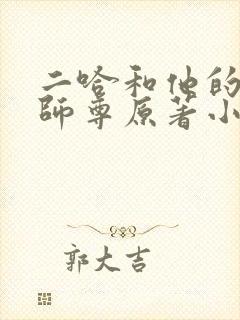 二哈和他的
師尊原著小
郭大吉